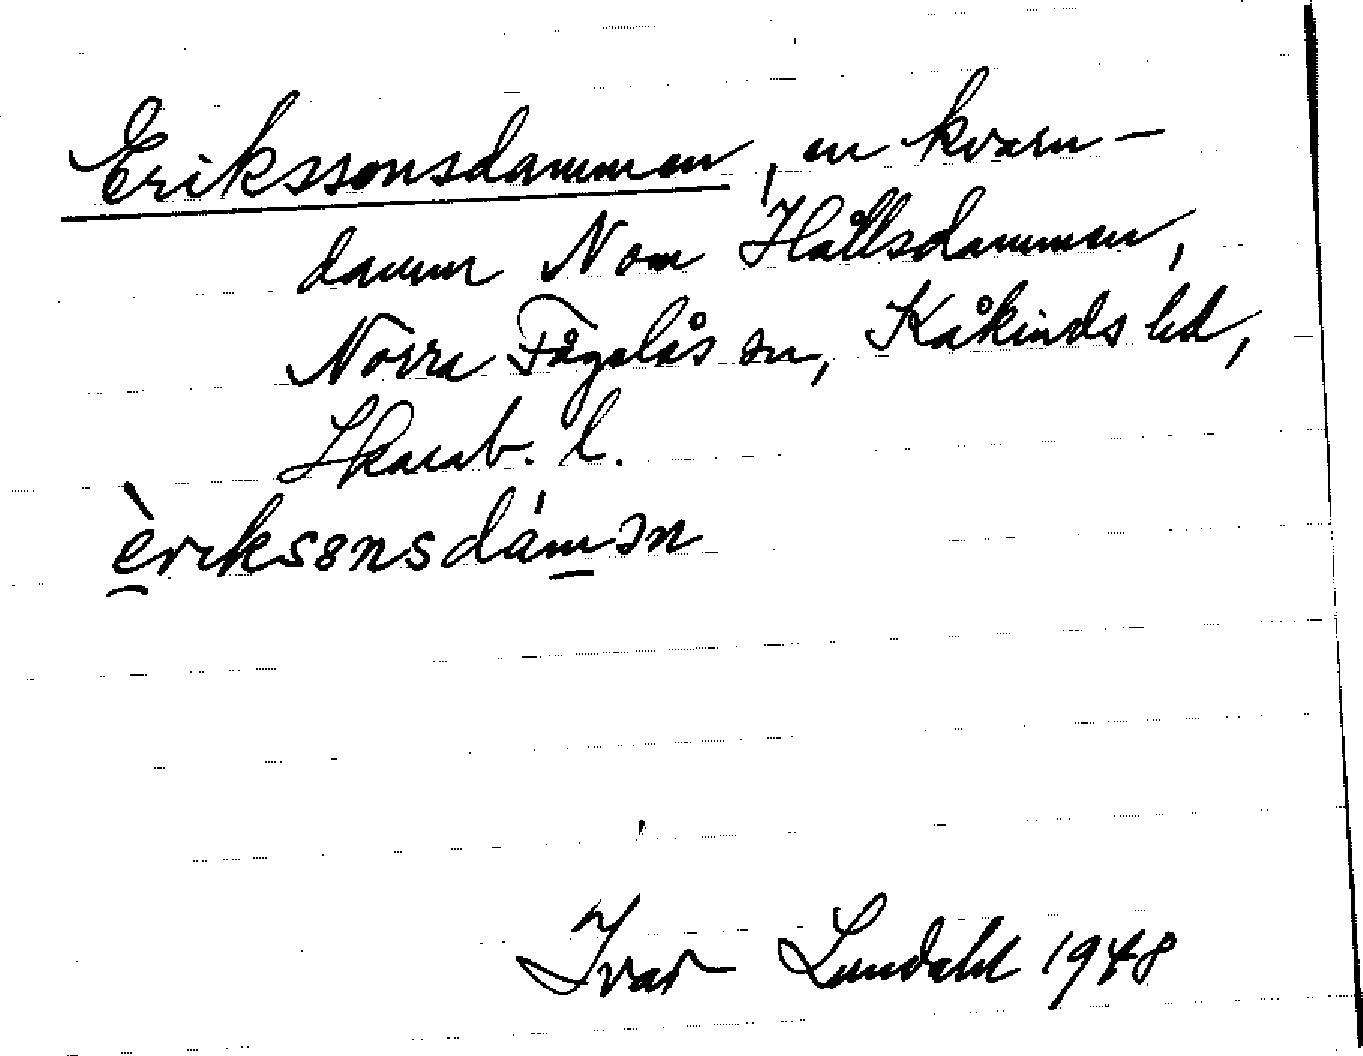 Erikssonsdammen, en kvarn-
damm N om Hållsdammen,
Norra Fågelås sn, Kåkinds hd,
Skarab. l.
èrikssnsdámən
Ivar Lundahl 1948